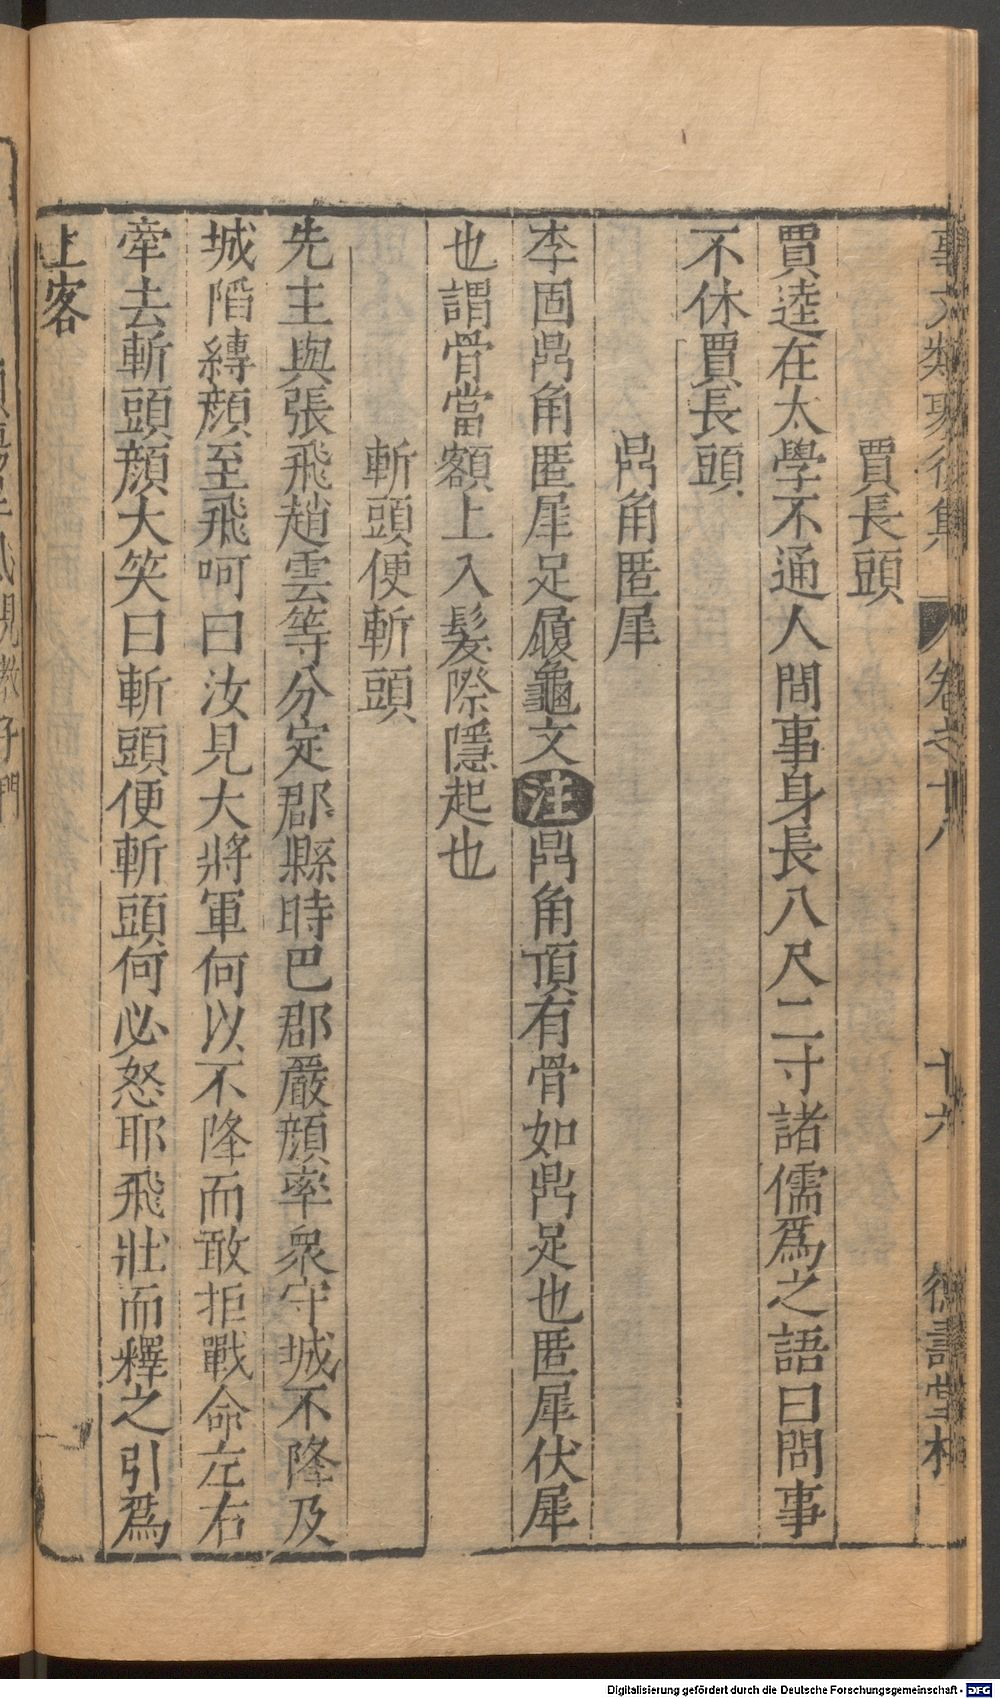 事文類聚後集 卷之十八 十六 德壽堂梓
賈長頭
賈逵在太學不通人間事身長八尺二寸諸儒爲之語曰問事
不休賈長頭
鼎角匿犀
李固鼎角匿犀足履龜文注鼎角頂有骨如鼎足也匿犀伏犀
也謂骨當額上入髮際隱起也
斬頭便斬頭
先主與張飛趙雲等分定郡縣時巴郡嚴顔率衆守城不降及
城陷縛顔至飛呵曰汝見大將軍何以不降而敢拒戰命左右
牽去斬頭顔大笑曰斬頭便斬頭何必怒耶飛壯而釋之引爲
上客
Digitalisierung gefördert durch die Deutsche Forschungsgemeinschaft - DFG